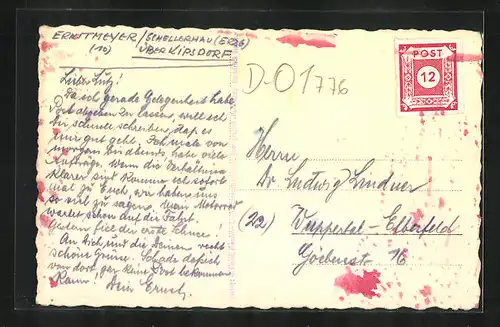 ERNSTMEYER / SCHELLERHAU (ERZG)
(10) ÜBER KIPSDORF
Lieber Lutz!
Da ich gerade Gelegenheit habe
Post abgeben zu lassen, will ich
Dir schnell schreiben, daß es
mir gut geht. Ich
morgen habe viele
Aufträge. Wenn die Verhältnisse
klarer sind komme ich sofort
mal zu Euch, wir haben uns
so viel zu sagen. Mein Motorrad
wartet schon auf die Fahrt.
Gestern fiel der erste Schnee!
An Dich und die Deinen recht
schöne Grüsse. Schade daß ich
von dort gar keine Post bekommen
kann! Dein Ernst.
D-01776
POST
12
Herrn
Dr. Ludwig Lindner
(22) Wuppertal-Elberfeld
Goebenst. 16